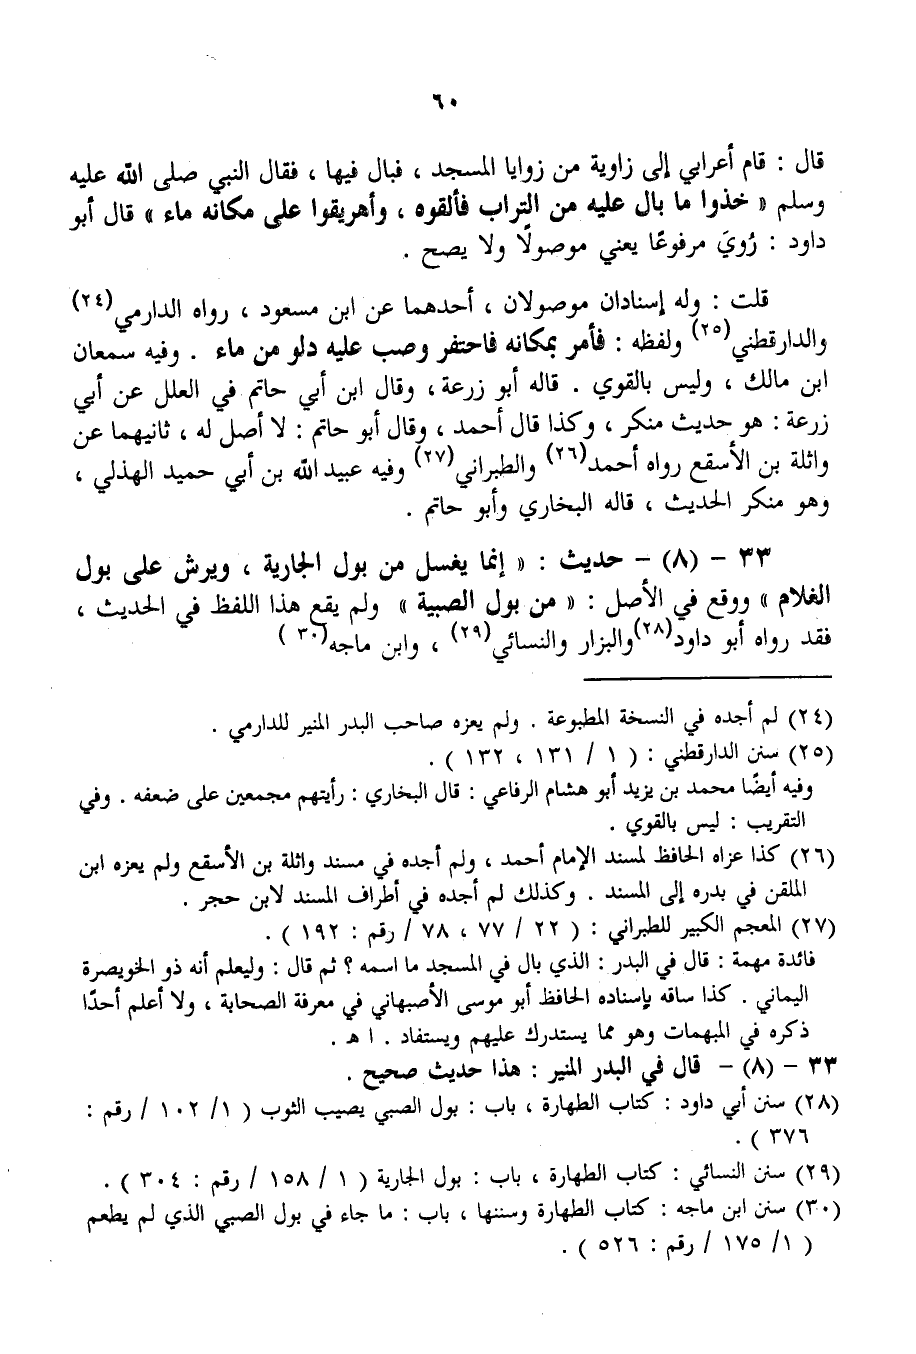 ٦٠
قال : قام أعرابي إلى زاوية من زوايا المسجد ، فبال فيها ، فقال النبي صلى الله عليه
وسلم « خذوا ما بال عليه من التراب فألقوه ، وأهريقوا على مكانه ماء » قال أبو
داود : رُويَ مرفوعًا يعني موصولًا ولا يصح .
قلت : وله إسنادان موصولان ، أحدهما عن ابن مسعود ، رواه الدارمي(٢٤)
والدارقطني(٢٥) ولفظه : فأمر بمكانه فاحتفر وصب عليه دلو من ماء . وفيه سمعان
ابن مالك ، وليس بالقوي . قاله أبو زرعة ، وقال ابن أبي حاتم في العلل عن أبي
زرعة : هو حديث منكر ، وكذا قال أحمد ، وقال أبو حاتم : لا أصل له ، ثانيهما عن
واثلة بن الأسقع رواه أحمد(٢٦) والطبراني(٢٧) وفيه عبيد الله بن أبي حميد الهذلي ،
وهو منكر الحديث ، قاله البخاري وأبو حاتم .
٣٣ - (٨) - حديث : « إنما يغسل من بول الجارية ، ويرش على بول
الغلام » ووقع في الأصل : « من بول الصبية » ولم يقع هذا اللفظ في الحديث ،
فقد رواه أبو داود(٢٨) والبزار والنسائي(٢٩) ، وابن ماجه(٣٠)
(٢٤) لم أجده في النسخة المطبوعة . ولم يعزه صاحب البدر المنير للدارمي .
(٢٥) سنن الدارقطني : ( ١ / ١٣١ ، ١٣٢ ) .
وفيه أيضًا محمد بن يزيد أبو هشام الرفاعي : قال البخاري : رأيتهم مجمعين على ضعفه . وفي
التقريب : ليس بالقوي .
(٢٦) كذا عزاه الحافظ لمسند الإمام أحمد ، ولم أجده في مسند واثلة بن الأسقع ولم يعزه ابن
الملقن في بدره إلى المسند . وكذلك لم أجده في أطراف المسند لابن حجر .
(٢٧) المعجم الكبير للطبراني : ( ٢٢ / ٧٧ ، ٧٨ / رقم : ١٩٢ ) .
فائدة مهمة : قال في البدر : الذي بال في المسجد ما اسمه ؟ ثم قال : وليعلم أنه ذو الخويصرة
اليماني . كذا ساقه بإسناده الحافظ أبو موسى الأصبهاني في معرفة الصحابة ، ولا أعلم أحدًا
ذكره في المبهمات وهو مما يستدرك عليهم ويستفاد . ا هـ .
٣٣ - (٨) - قال في البدر المنير : هذا حديث صحيح .
(٢٨) سنن أبي داود : كتاب الطهارة ، باب : بول الصبي يصيب الثوب ( ١/ ١٠٢ / رقم :
٣٧٦ ) .
(٢٩) سنن النسائي : كتاب الطهارة ، باب : بول الجارية ( ١ / ١٥٨ / رقم : ٣٠٤ ) .
(٣٠) سنن ابن ماجه : كتاب الطهارة وسننها ، باب : ما جاء في بول الصبي الذي لم يطعم
( ١/ ١٧٥ / رقم : ٥٢٦ ) .